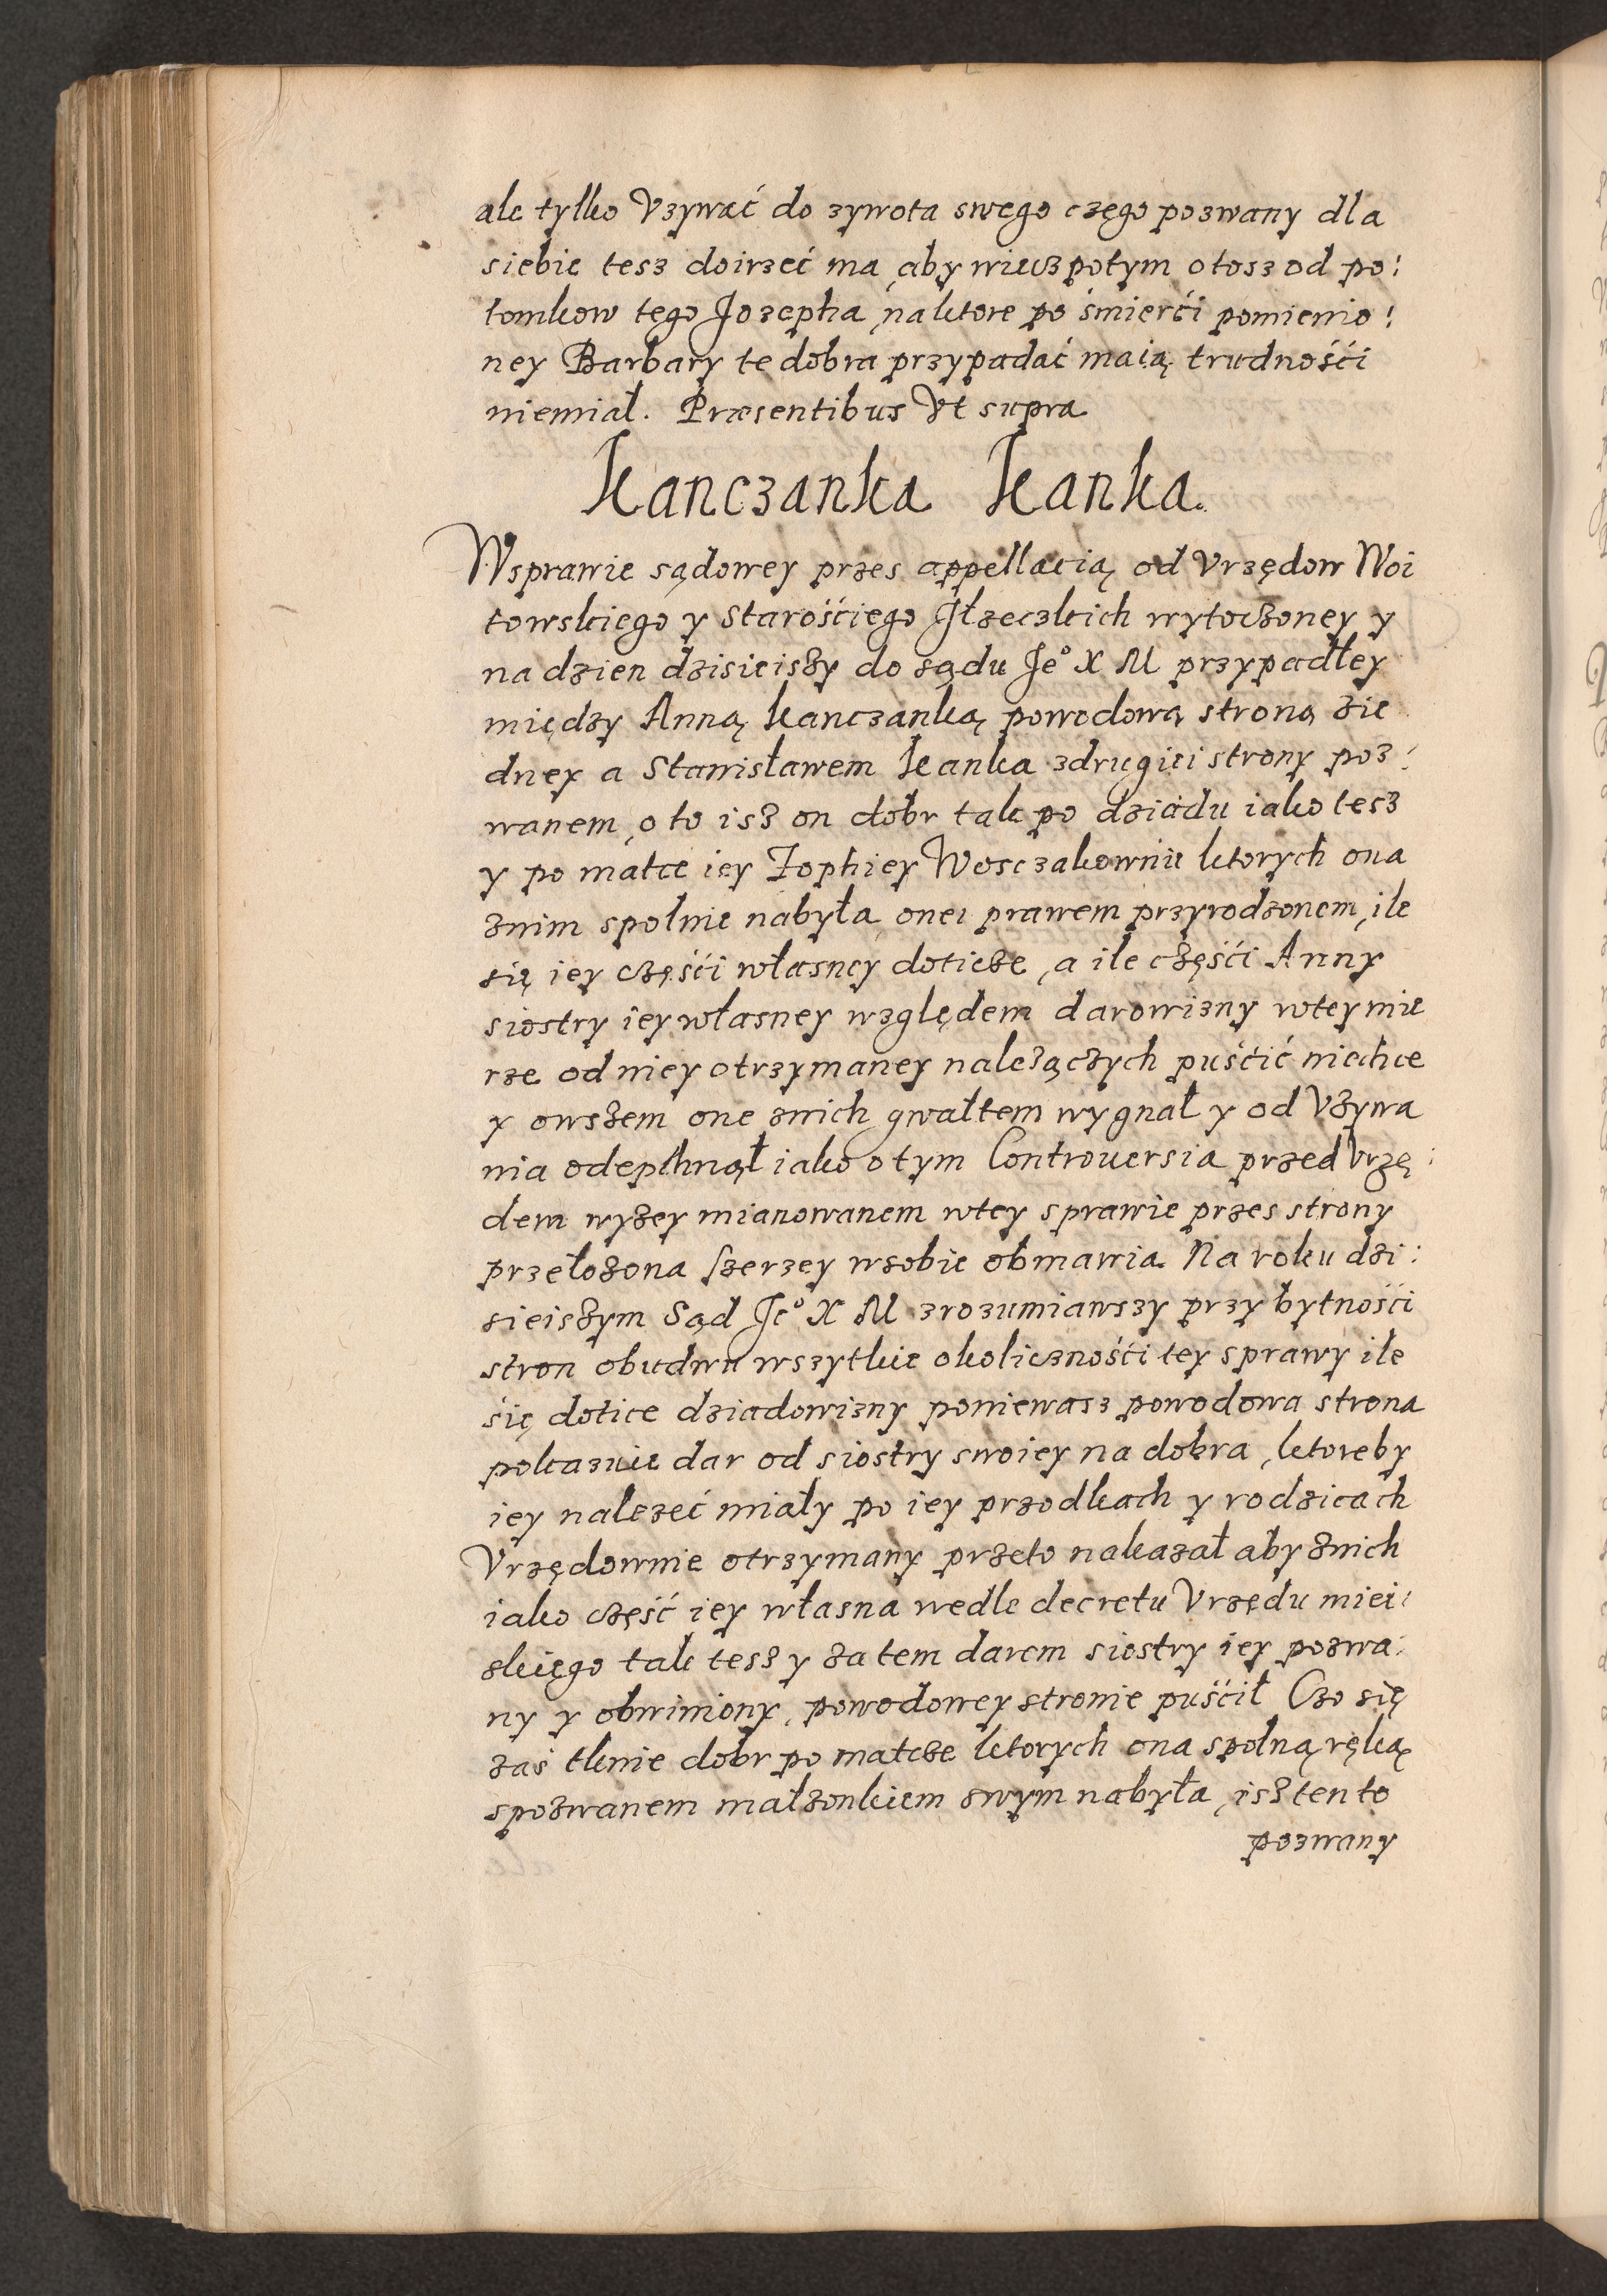 ale tylko Vzywać do zywota swego czego pozwany dla
siebie tesz doirzeć ma, aby wieczpotym otosz od po:
tomkow tego Jozepha, na ktore po śmierći pomienio:
ney Barbary te dobra przypadać maią trudnośći
niemiał. Præsentibus Vt supra
Kanczanka Kanka.
Wsprawie sądowey przes appellacią od Vrzędow Woi
towskiego y Starośćiego Jłzeczkich wytoczoney y
na dzien dzisieiszy do sądu Je° X M przypadłey
między Anną Kanczanką powodową stroną zie
dney a Stanisławem Kanka zdrugiei strony poz:
wanem, o to isz on dobr tak po dziadu iako tesz
y po matce iey Zophiey Wosczakownie ktorych ona
znim spolnie nabyła onei prawem przyrodzonem, ile
się iey częśći własney doticze, a ile częśći Anny
siostry iey własney względem darowizny wtey mie
rze od niey otrzymaney nalezączych puśćić niechce
y owszem one znich gwałtem wygnał y od Vzywa
nia odepchnął iako o tym Controuersia przed Vrzę:
dem wyzey mianowanem wtey sprawie przes strony
przełozona szerzey wsobie obmawia. Na roku dzi:
sieiszym Sąd Je° X M zrozumiawszy przy bytnośći
stron obudwu wszytkie okolicznośći tey sprawy ile
się dotice dziadowizny poniewasz powodowa strona
pokazuie dar od siostry swoiey na dobra, ktoreby
iey nalezeć miały po iey przodkach y rodzicach
Vrzędownie otrzymany przeto nakazał aby znich
iako część iey własna wedle decretu Vrzędu miei:
skiego tak tesz y za tem darem siostry iey pozwa:
ny y obwiniony, powodowey stronie puśćił Czo się
zaś tknie dobr po matcze ktorych ona spolną ręką
spozwanem małzonkiem swym nabyła, isz ten to
pozwany